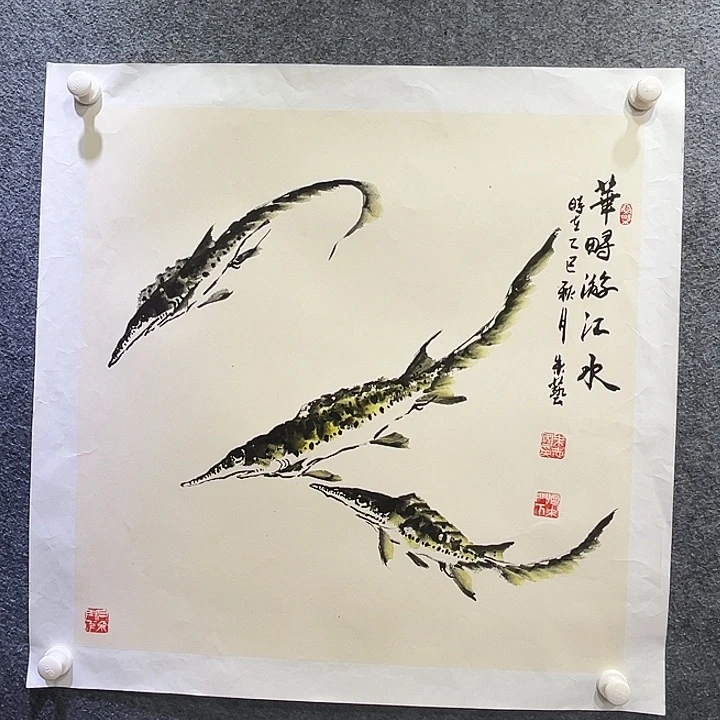 華鱘游江水
時在乙巳秋月 朱藝